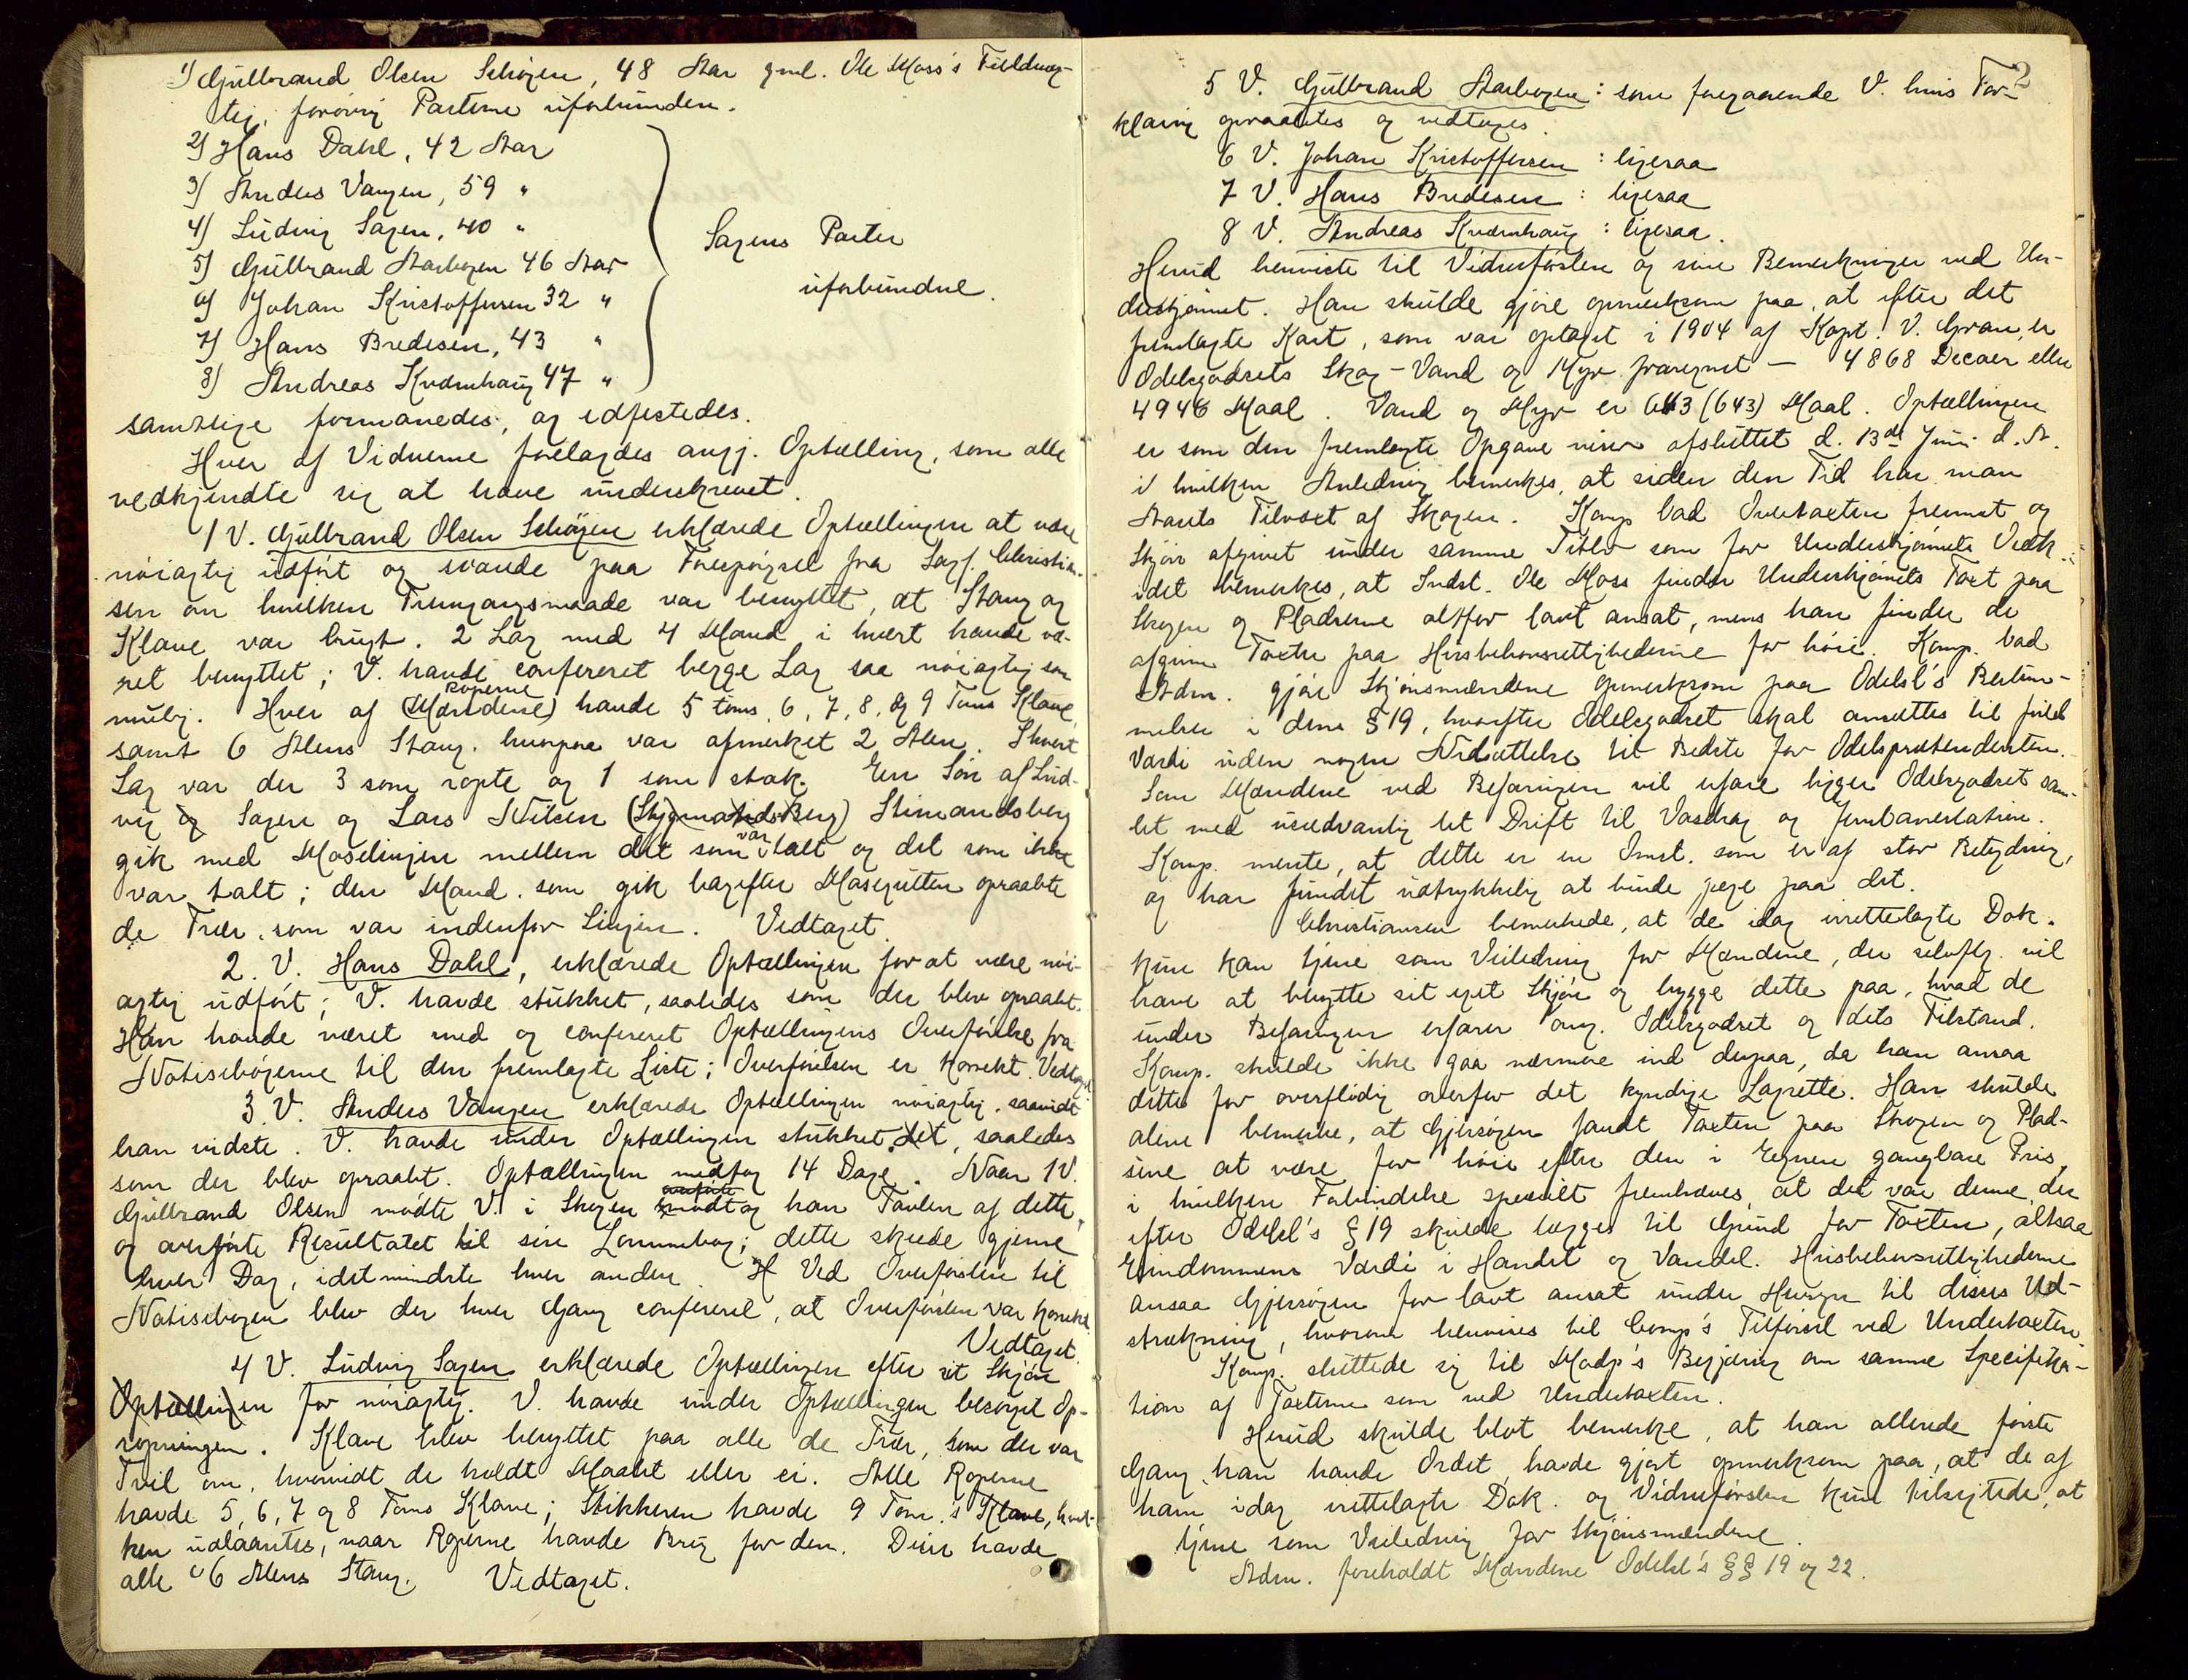 1) Gulbrand Olsen Schøyen, 48 Aar gml. Ole Moss's Fuldmæg-
tig, forøvrig Parterne uforbunden.
2) Hans Dahl, 42 Aar
3) Anders Vangen, 59 "
4) Ludvig Sagen, 40 "
5) Gulbrand Aasbogen 46 Aar
6) Johan Kristoffersen 32 "
7) Hans Bredesen, 43 "
8) Andreas Kværnhaug 47 "
Sagens Parter
uforbundne.
samtlige formanedes, og edfæstedes.
Hver af Vidnerne forelagdes angj. Optælling, som alle
vedkjendte sig at have underskrevet.
1 V. Gulbrand Olsen Schøyen erklærede Optællingen at være
nøiagtig udført og svarede paa Forespørgsel fra Sagf. Christian-
sen om hvilken Fremgangsmaade var benyttet, at Stang og
Klave var brugt. 2 Lag med 4 Mand i hvert havde væ-
ret benyttet; V. havde confereret begge Lag saa nøiagtig som
mulig. Hver af (Mændene) Roperne havde 5 toms, 6, 7, 8, og 9 Toms Klave
samt 6 Alens Stang, hvorpaa var afmerket 2 Alen. I hvert
Lag var der 3 som ropte og 1 som stak. En Søn af Lud-
vig og Sagen og Lars Nilsen (Stigmands Berg) Stimandsberg
gik med Maselinjen mellem det som var talt og det som ikke
var talt; den Mand, som gik bagefter Masegutten opraabte
de Trær, som var indenfor Linjen. Vedtaget.
2. V. Hans Dahl, erklærede Optællingen for at være nøi-
agtig udført; V. havde stukket, saaledes som der blev opraabt.
Han havde været med og confereret Optællingens Overførelse fra
Notisebøgerne til den fremlagte Liste; Overførelsen er korrekt. Vedtaget
3 V. Anders Vangen erklærede Optællingen nøiagtig, saavidt
han vidste. V. havde under Optællingen stukket det, saaledes
som der blev opraabt. Optællingen medtog 14 Dage. Naar 1 V.
Gulbrand Olsen mødte V. i Skogen modtog han Tavlen af dette,
og overførte Resultatet til sin Lommebog; dette skede gjerne
hver Dag, idetmindste hver anden. Ved Overførslen til
Notisebogen blev der hver Gang confereret, at Overførslen var korrekt.
Vedtaget.
4 V. Ludvig Sagen erklærede Optællingen efter sit Skjøn
Optællingen for nøiagtig. V. havde under Optællingen besørget Op-
ropningen. Klave blev benyttet paa alle de Trær, som der var
Tvil om, hvorvidt de holdt Maalet eller ei. Alle Roperne
havde 5, 6, 7 og 8 Toms Klave; Stikkeren havde 9 Tom.'s Klave, hvil-
ken udlaantes, naar Roperne havde Brug for den. Disse havde
alle 6 Alens Stang. Vedtaget.
2
5 V. Gulbrand Aasbogen: som foregaaende V. hvis For-
klaring opraabtes og vedtoges.
6 V. Johan Kristoffersen : ligesaa
7 V. Hans Bredesen : ligesaa
8 V. Andreas Kværnhaug : ligesaa.
Huud henviste til Vidneførslen og sine Bemerkninger ved Un-
derskjønnet. Han skulde gjøre opmerksom paa, at efter det
fremlagte Kart, som var optaget i 1904 af Kapt. V. Gran, er
Odelsgodsets Skog - Vand og Myr fraregnet - 4868 Decaer, eller
4946 Maal. Vand og Myr er 643 (643) Maal. Optællingen
er som den fremlagte Opgave viser afsluttet d. 13de Juni d. A.
i hvilken Anledning bemerkes, at siden den Tid har man
Aarets Tilvæxt af Skogen. Komp bad Overtaxten fremmet og
Skjøn afgivet under samme Titler som for Underskjønnets Vedk.
idet bemerkes, at Indst. Ole Moss finder Underskjønnets Taxt paa
Skogen og Pladserne altfor lavt ansat, mens han finder de
afgivne Taxter paa Husbehovsrettighederne for høie. Komp. bad
Adm. gjøre Skjønsmændene opmerksom paa Odelsl's Bestem-
melse i dens § 19, hvorefter Odelsgodset skal ansættes til fuld
Værdi uden nogen Nedsættelse til Bedste for Odelsprætendenten.
Som Mændene ved Befaringen vil erfare ligger Odelsgodset sam-
let med usædvanlig let Drift til Vasdrag og Jernbanestation.
Komp. mente, at dette er en Omst. som er af stor Betydning,
og har fundet udtrykkelig at burde pege paa det.
Christiansen bemerkede, at de idag irettelagte Dok.
kun kan tjene som Veiledning for Mændene, der selvflg. vil
have at benytte sit eget Skjøn og bygge dette paa, hvad de
under Befaringen erfarer ang. Odelsgodset og dets Tilstand.
Komp. skulde ikke gaa nærmere ind derpaa, da han ansaa
dette for overflødig overfor det kyndige Lagrette. Han skulde
alene bemerke, at Gjersøgen fandt Taxten paa Skogen og Plad-
sene at være for høie efter den i Egnen gangbare Pris,
i hvilken Forbindelse specielt fremhæves, at det var denne, der
efter Odelsl's § 19 skulde lægges til Grund for Taxten, altsaa
Eiendommens Værdi i Handel og Vandel. Husbehovsrettighederne
ansaa Gjersøgen for lavt ansat under Hensyn til disses Ud-
strækning, hvorom henvises til Comp's Tilførsel ved Undertaxten.
Komp. sluttede sig til Modp's Begjæring om samme Specifika-
tion af Taxterne som ved Undertaxten.
Huud skulde blot bemerke, at han allerede første
Gang han havde Ordet havde gjort opmerksom paa, at de af
ham idag irettelagte Dok. og Vidneførslen kun tilsigtede, at
tjene som Veiledning for Skjønsmændene.
Adm. foreholdt Mændene Odelsl's §§ 19 og 22.